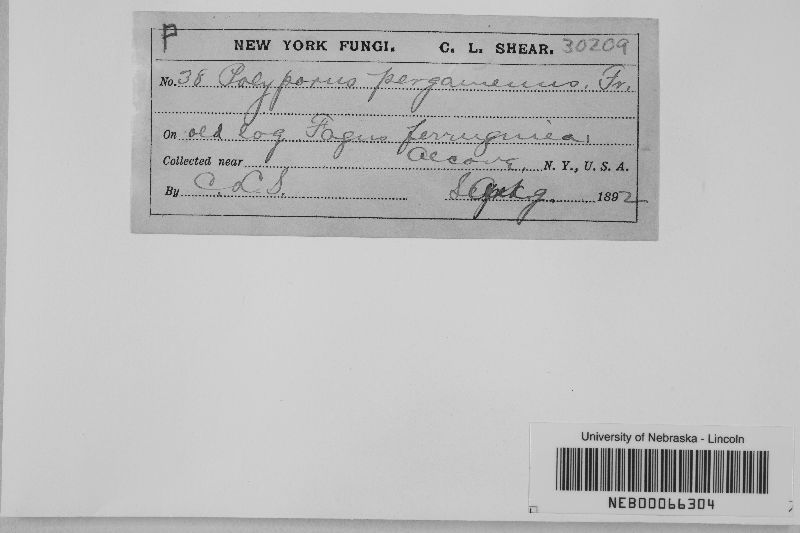 P
NEW YORK FUNGI. C. L. SHEAR. 30209
No. 38 Polyporus pergamenus. Fr.
On old log Fagus ferruginea,
Collected near Alcove, N. Y., U. S. A.
By C. L. S. Sept 9. 1892
University of Nebraska - Lincoln
NEB00066304